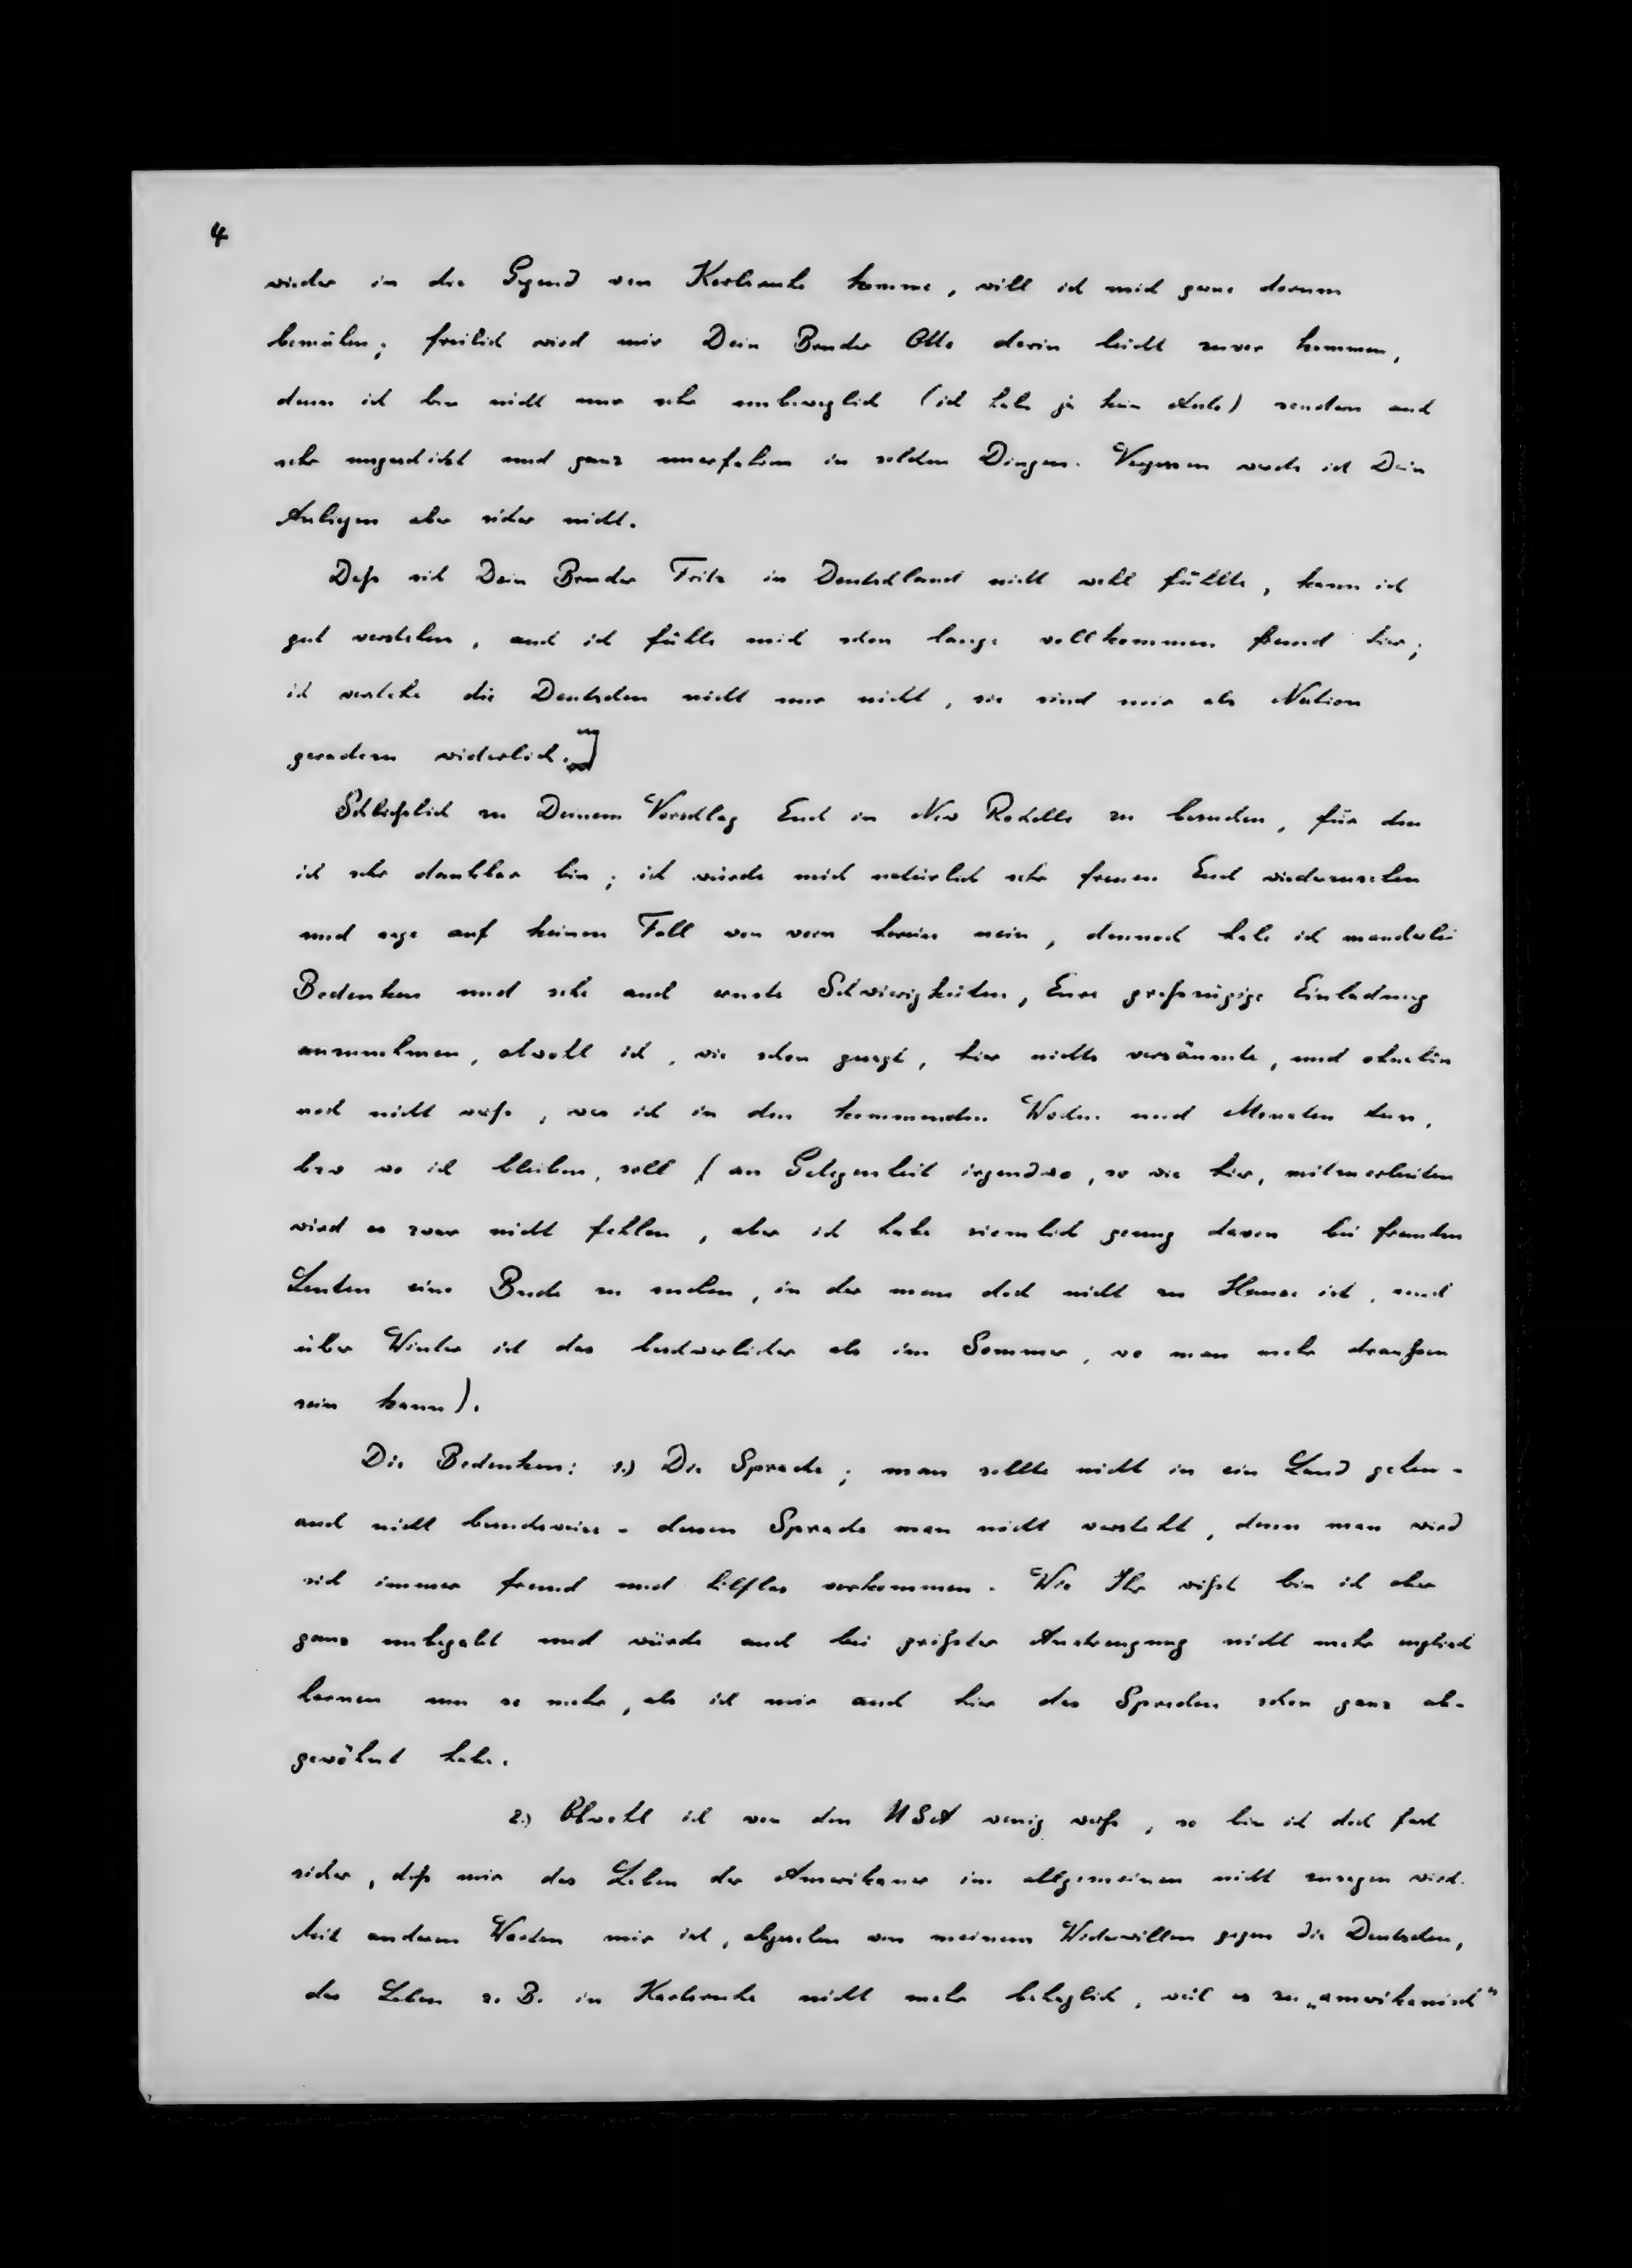 4
wieder in die Gegend von Karlsruhe komme, will ich mich gerne darum
bemühen; freilich wird mir Dein Bruder Otto darin leicht zuvor kommen,
denn ich bin nicht nur sehr unbeweglich (ich habe ja kein Auto) sondern auch
sehr ungeschickt und ganz unerfahren in solchen Dingen. Vergessen werde ich Dein
Anliegen aber sicher nicht.
Daß sich Dein Bruder Fritz in Deutschland nicht wohl fühlte, kann ich
gut verstehen, auch ich fühle mich schon lange vollkommen fremd hier;
ich verstehe die Deutschen nicht nur nicht, sie sind mir als Nation
geradezu widerlich.]
Schließlich zu Deinem Vorschlag Euch in New Rochelle zu besuchen, für den
ich sehr dankbar bin; ich würde mich natürlich sehr freuen Euch wiederzusehen
und sage auf keinen Fall von vorn herein nein, dennoch habe ich mancherlei
Bedenken und sehe auch ernste Schwierigkeiten, Eure großzügige Einladung
anzunehmen, obwohl ich, wie schon gesagt, hier nichts versäumte, und ohnehin
noch nicht weiß, was ich in den kommenden Wochen und Monaten tun,
bzw wo ich bleiben, soll (an Gelegenheit irgendwo, so wie hier, mitzuarbeiten
wird es zwar nicht fehlen, aber ich habe ziemlich genug davon bei fremden
Leuten eine Bude zu suchen, in der man doch nicht zu Hause ist, und
über Winter ist das beschwerlicher als im Sommer, wo man mehr draußen
sein kann).
Die Bedenken: 1.) Die Sprache; man sollte nicht in ein Land gehen -
auch nicht besuchsweise - dessen Sprache man nicht versteht, denn man wird
sich immer fremd und hilflos vorkommen. Wie Ihr wißt bin ich aber
ganz unbegabt und würde auch bei größter Anstrengung nicht mehr englisch
lernen um so mehr, als ich mir auch hier das Sprechen schon ganz ab-
gewöhnt habe.
2.) Obwohl ich von den USA wenig weiß, so bin ich doch fast
sicher, daß mir das Leben der Amerikaner im allgemeinen nicht zusagen wird.
Mit anderen Worten mir ist, abgesehen von meinem Widerwillen gegen die Deutschen,
das Leben z. B. in Karlsruhe nicht mehr behaglich, weil es zu „amerikanisch"